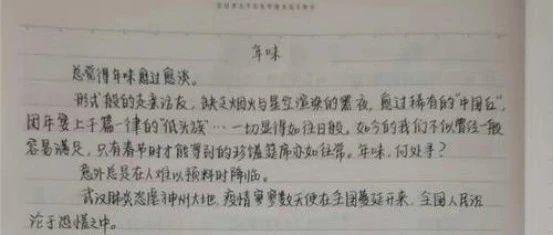 年味
总觉得年味愈过愈淡。
形式般的走亲访友，缺乏烟火与星空渲染的黑夜，愈过稀有的“中国红”，
团年宴上千篇一律的“低头族”…一切显得如往日般。如今的我们不似曾经一般
容易满足，只有春节时才能等到的珍馐筵席亦如往常。年味，何处寻？
意外总是在人难以预料时降临。
武汉肺炎恣虐神州大地，疫情寥寥数天便在全国蔓延开来，全国人民沉
沦于恐慌之中。